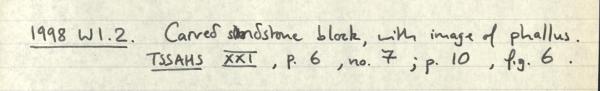 1998 W1.2. Carved sandstone block, with image of phallus.
TSSAHS XXI, p. 6, no. 7; p. 10, fig. 6.